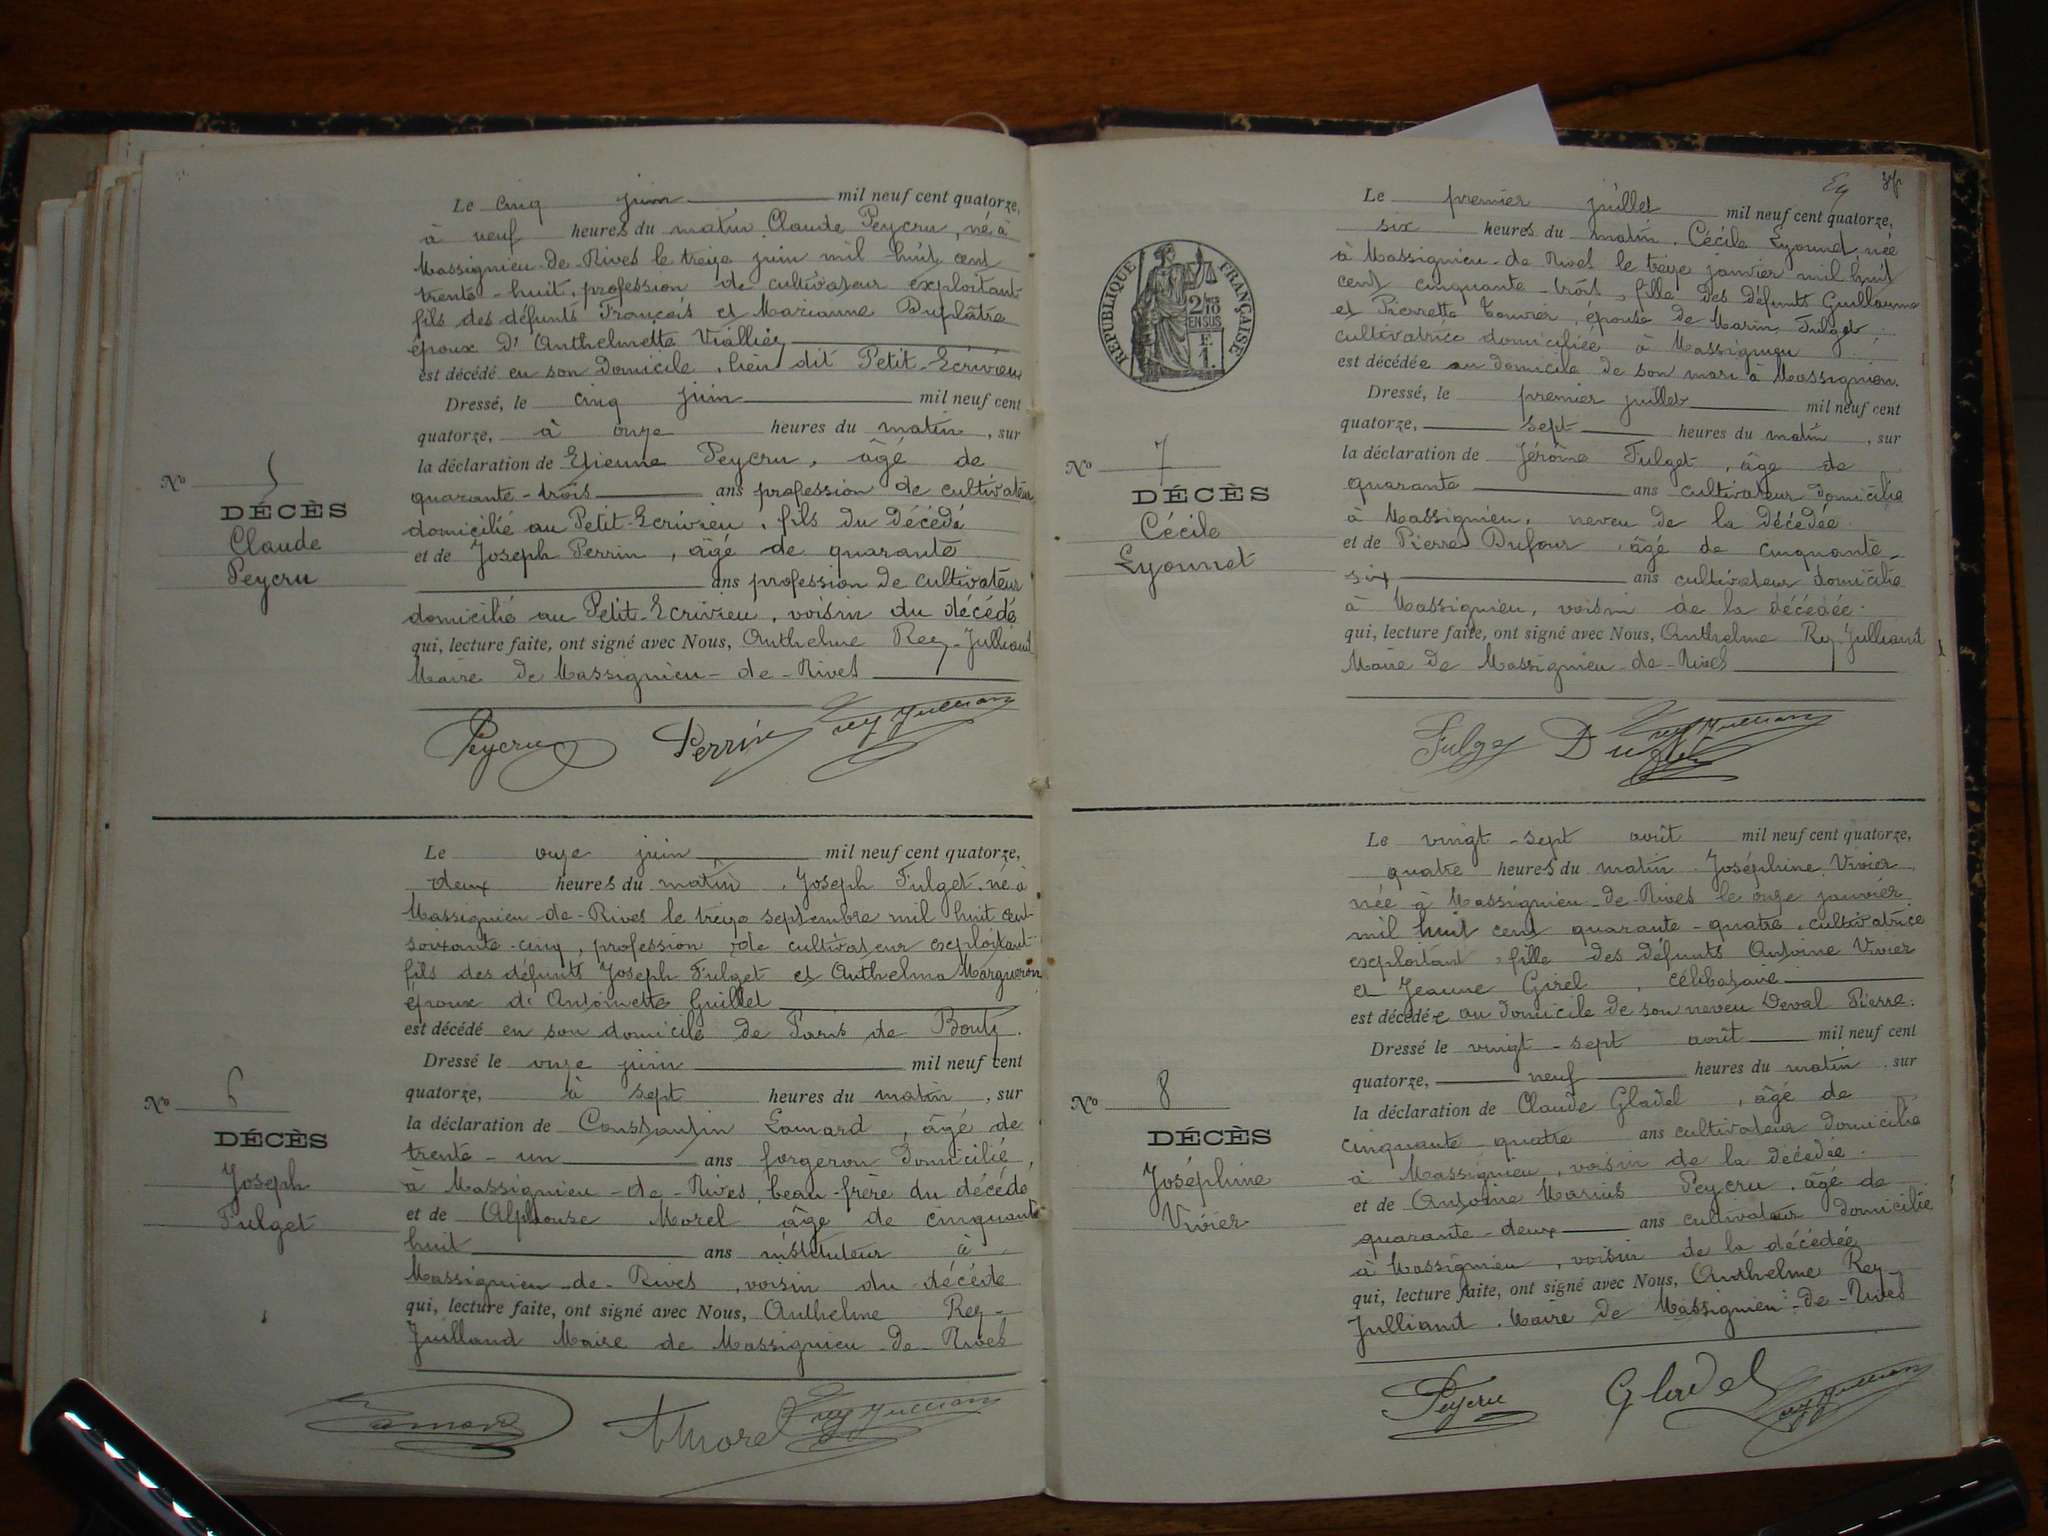 Le cinq juin mil neuf cent quatorze,
à neuf heures du matin, Claude Peycru, né à
Massignieu-de-Rives le treize juin mil huit cent
trente-huit, profession de cultivateur exploitant
fils des défunts François et Marianne Duplâtre
époux d'Anthelmette Viallier
est décédé en son domicile, lieu dit Petit-Ecrivieu
Dressé, le cinq juin mil neuf cent
quatorze, à onze heures du matin, sur
la déclaration de Etienne Peycru, âgé de
quarante-trois ans profession de cultivateur
domicilié au Petit-Ecrivieu, fils du décédé
et de Joseph Perrin, âgé de quarante
ans profession de cultivateur
domicilié au Petit-Ecrivieu, voisin du décédé
qui, lecture faite, ont signé avec Nous, Anthelme Rey-Julliand
Maire de Massignieu-de-Rives
No 5
DÉCÈS
Claude
Peycru
Peycru Perrin Rey Julliand
Le onze juin mil neuf cent quatorze,
deux heures du matin, Joseph Fulget, né à
Massignieu-de-Rives le treize septembre mil huit cent
soixante-cinq, profession de cultivateur exploitant
fils des défunts Joseph Fulget et Anthelma Margueron
époux d'Antoinette Guillet
est décédé en son domicile de Paris de Bouty.
Dressé le onze juin mil neuf cent
quatorze, à sept heures du matin, sur
la déclaration de Constantin Lamard, âgé de
trente-un ans forgeron domicilié,
à Massignieu-de-Rives, beau-frère du décédé,
et de Alphonse Morel âgé de cinquante
huit ans instituteur à
Massignieu-de-Rives, voisin du décédé
qui, lecture faite, ont signé avec Nous, Anthelme Rey-
Juilland Maire de Massignieu-de-Rives
No 6
DÉCÈS
Joseph
Fulget
Lamard AMorel Rey Julliand
Le premier juillet mil neuf cent quatorze,
six heures du matin, Cécile Lyonnet, née
à Massignieu-de-Rives le treize janvier mil huit
cent cinquante-trois, fille des défunts Guillaume
et Pierrette Touvier, épouse de Marin Fulget
cultivatrice domiciliée à Massignieu
est décédée au domicile de son mari à Massignieu.
Dressé, le premier juillet mil neuf cent
quatorze, sept heures du matin, sur
la déclaration de Jérôme Fulget, âgé de
quarante ans cultivateur domicilié
à Massignieu, neveu de la décédée.
et de Pierre Dufour, âgé de cinquante-
six ans cultivateur domicilié
à Massignieu, voisin de la décédée.
qui, lecture faite, ont signé avec Nous, Anthelme Rey-Julliand
Maire de Massignieu-de-Rives
RÉPUBLIQUE FRANÇAISE
2/10
EN SUS
F.
1.
No 7
DÉCÈS
Cécile
Lyonnet
Fulget Dufour Rey Julliand
Le vingt-sept août mil neuf cent quatorze,
quatre heures du matin. Joséphine Vivier,
née à Massignieu-de-Rives le onze janvier
mil huit cent quarante-quatre, cultivatrice
exploitant, fille des défunts Antoine Vivier
et Jeanne Girel, célibataire
est décédée au domicile de son neveu Deval Pierre.
Dressé le vingt-sept août mil neuf cent
quatorze, neuf heures du matin, sur
la déclaration de Claude Gladel, âgé de
cinquante-quatre ans cultivateur domicilié
à Massignieu, voisin de la décédée.
et de Antoine Marius Peycru, âgé de
quarante-deux ans cultivateur domicilié
à Massignieu, voisin de la décédée
qui, lecture faite, ont signé avec Nous, Anthelme Rey-
Julliand, Maire de Massignieu-de-Rives
No 8
DÉCÈS
Joséphine
Vivier
Peycru Gladel Rey Julliand